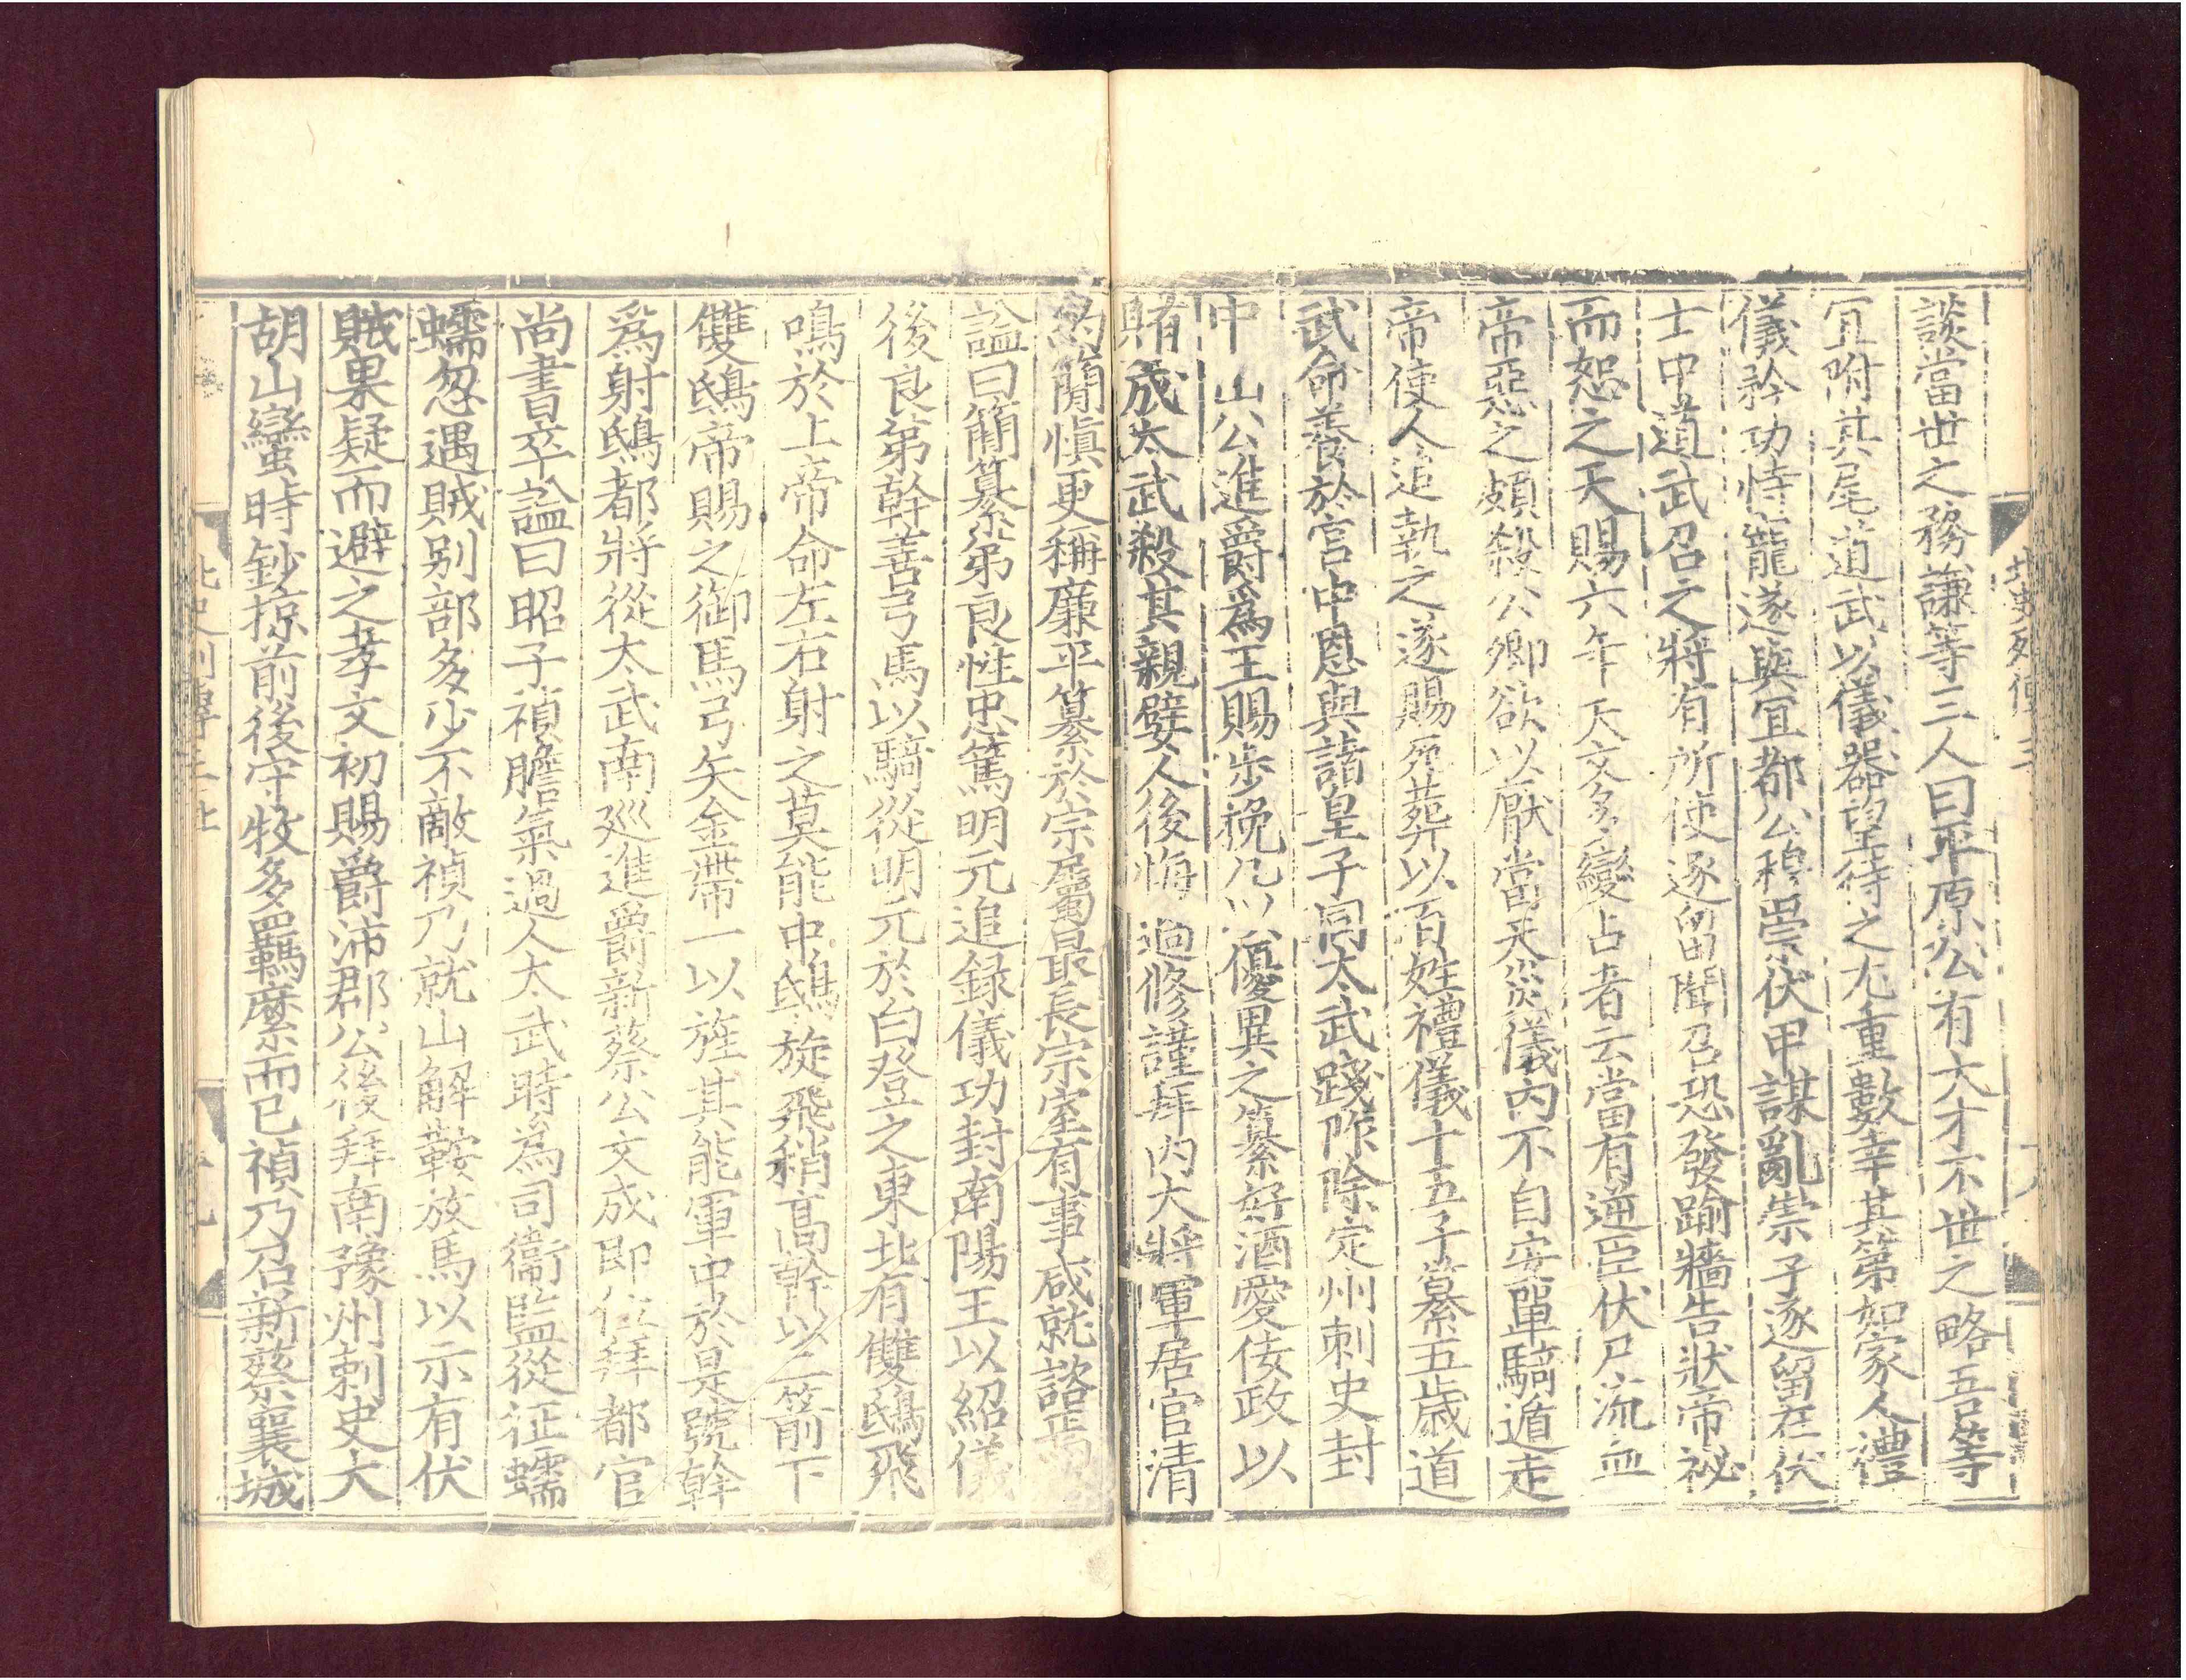 北史列傳三
談當世之務謙等三人曰平原公有大才不世之略吾等
宜附其尾道武以儀器望待之尤重數幸其第如家人禮
儀矜功恃寵遂與宜都公穆崇伏甲謀亂崇子逐留在伏
士中道武召之將有所使逐留聞召恐發踰牆告狀帝祕
而恕之天賜六年天文多變占者云當有逆臣伏尸流血
帝惡之頗殺公卿欲以厭當天災儀內不自安單騎遁走
帝使人追執之遂賜死葬以百姓禮儀十五子纂五歲道
武命養於宮中恩與諸皇子同太武踐阼除定州刺史封
中山公進爵爲王賜步挽几以優異之纂好酒愛佞政以
賄成太武殺其親嬖人後悔過修謹拜內大將軍居官清
約簡愼更稱廉平纂於宗屬最長宗室有事咸就諮焉
諡曰簡纂弟良性忠篤明元追録儀功封南陽王以紹儀
後良弟幹善弓馬以騎從明元於白登之東北有雙鴟飛
鳴於上帝命左右射之莫能中鴟旋飛稍高幹以二箭下
雙鴟帝賜之御馬弓矢金帶一以旌其能軍中於是號幹
爲射鴟都將從太武南巡進爵新蔡公文成即位拜都官
尚書卒諡曰昭子禎膽氣過人太武時爲司衞監從征蠕
蠕忽遇賊别部多少不敵禎乃就山解鞍放馬以示有伏
賊果疑而避之孝文初賜爵沛郡公後拜南豫州刺史大
胡山蠻時鈔掠前後守牧多羈縻而已禎乃召新蔡襄城
北史列傳三